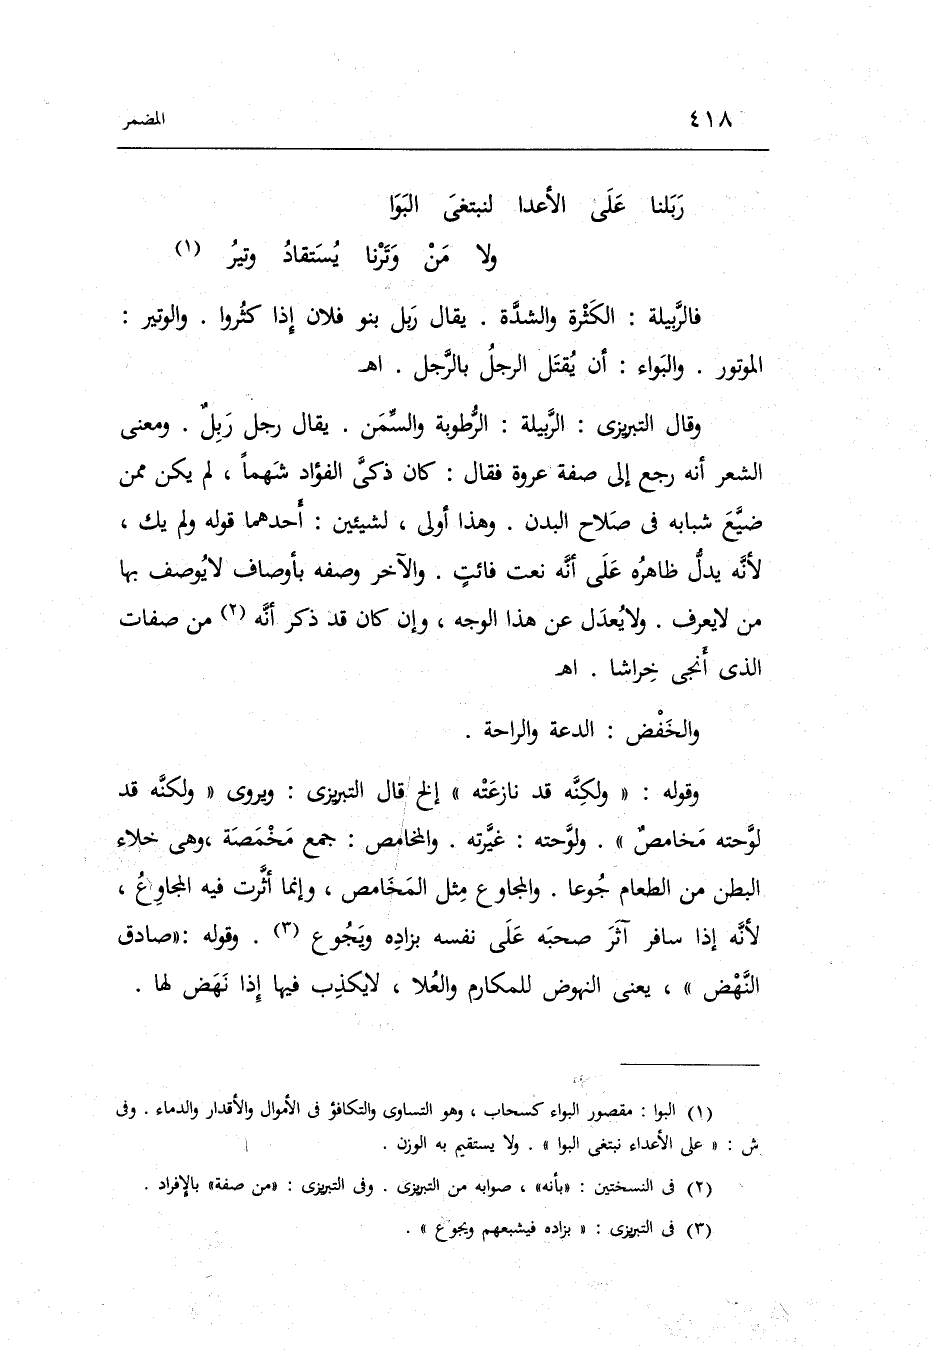 ٤١٨ المضمر
رَبَلنا عَلَى الأعدا لنبتغىَ البَوَا
ولا مَنْ وَتَرْنا يُسَتقادُ وتيرُ (١)
فالرَّبيلة : الكَثْرة والشدَّة . يقال رَبل بنو فلان إذا كثُروا . والوتير :
الموتور . والبَواء : أن يُقتَل الرجلُ بالرَّجل . اهـ
وقال التبريزى : الرَّبيلة : الرُّطوبة والسِّمَن . يقال رجل رَبِلٌ . ومعنى
الشعر أنه رجع إلى صفة عروة فقال : كان ذكىَّ الفؤاد شَهماً ، لم يكن ممن
ضيَّعَ شبابه فى صَلاح البدن . وهذا أولى ، لشيئين : أَحدهما قوله ولم يك ،
لأنَّه يدلُّ ظاهرُه عَلَى أنَّه نعت فائتٍ . والآخر وصفه بأوصاف لايُوصف بها
من لايعرف . ولايُعدَل عن هذا الوجه ، وإن كان قد ذكر أنَّه (٢) من صفات
الذى أَنجى خِراشا . اهـ
والخَفْض : الدعة والراحة .
وقوله : « ولكِنَّه قد نازعَتْه » إلخ قال التبريزى : ويروى « ولكنَّه قد
لوَّحته مَخامصٌ » . ولوَّحته : غيَّرته . والمخامص : جمع مَخْمَصَة ،وهى خلاء
البطن من الطعام جُوعا . والمجاوع مِثل المَخَامص ، وإنما أثَّرت فيه المجاوِعُ ،
لأنَّه إذا سافر آثَرَ صحبَه عَلَى نفسه بزادِه ويَجُوع (٣) . وقوله :«صادق
النَّهْض » ، يعنى النهوض للمكارم والعُلا ، لايكذِب فيها إذا نَهَض لها .
(١) البوا : مقصور البواء كسحاب ، وهو التساوى والتكافؤ فى الأموال والأقدار والدماء . وفى
ش : « على الأعداء نبتغى البوا » . ولا يستقيم به الوزن .
(٢) فى النسختين : «بأنه» ، صوابه من التبريزى . وفى التبريزى : «من صفة» بالإفراد .
(٣) فى التبريزى : « بزاده فيشبعهم ويجوع » .